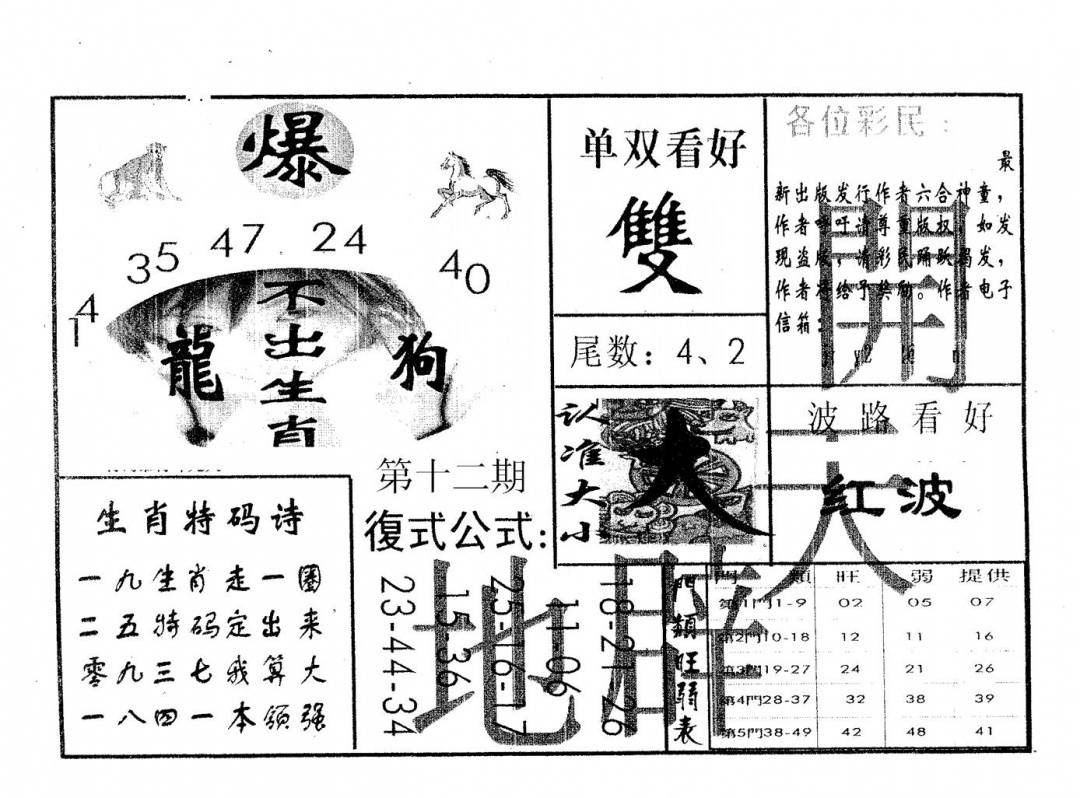 爆
14 35 47 24 40
不出生肖
龍
狗
单双看好
雙
尾数：4、2
各位彩民：
最
新出版发行作者六合神童，
作者呼吁请尊重版权，如发
现盗版，请彩民踊跃揭发，
作者将给予奖励。作者电子
信箱：
認准大小
大
波路看好
红波
開天地
第十二期
復式公式:
23-44-34
15-36
25-16-17
11-06
18-21-26
生肖特码诗
一九生肖走一圈
二五特码定出来
零九三七我算大
一八四一本领强
門類旺弱表
門類 旺 弱 提供
第1門1-9 02 05 07
第2門10-18 12 11 16
第3門19-27 24 21 26
第4門28-37 32 38 39
第5門38-49 42 48 41